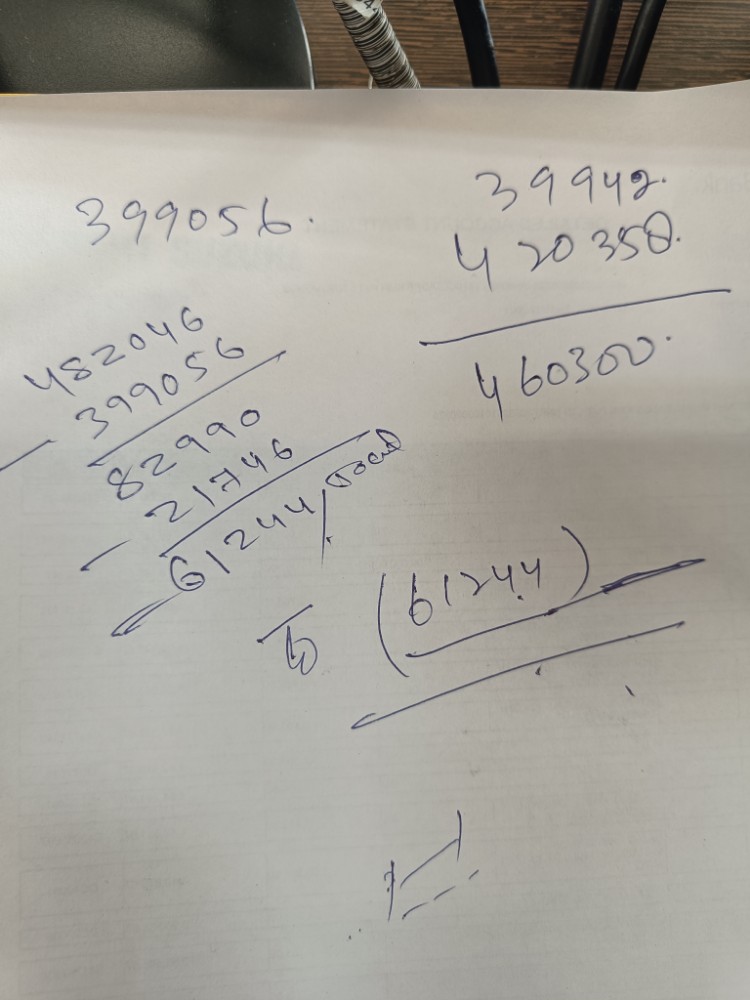 399056.
39942.
420358.
460300.
482046
399056
82990
21746
61244/
(61244)